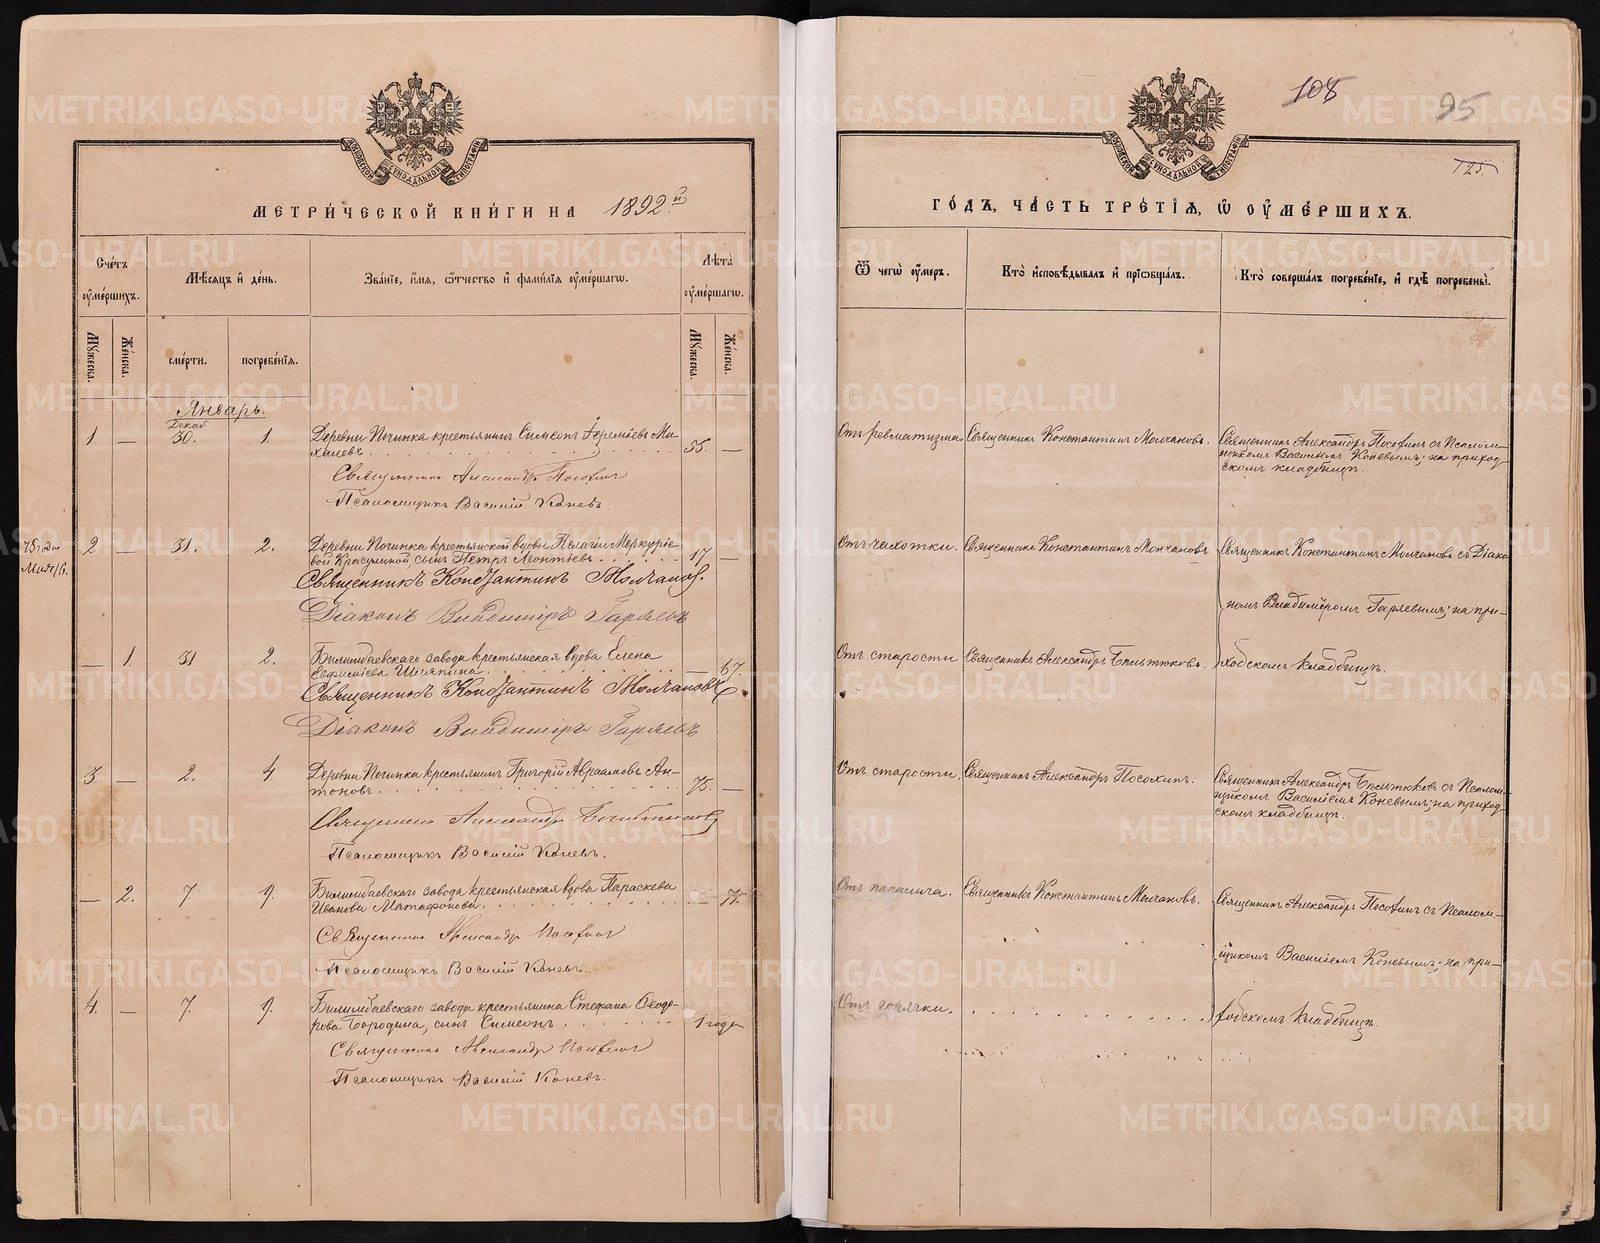 МЕТРИ́ЧЕСКОЙ КНИ́ГИ НА 1892.й
Сче́тъ ᲂу҆ме́ршихъ.
Мѣ́сяцъ и҆ де́нь.
Зва́нїе, и҆́мя, ѻ҆́тчество и҆ фами́лїя ᲂу҆ме́ршагѡ.
Лѣ́та ᲂу҆ме́ршагѡ.
Мꙋ́жеска.
Же́нска.
сме́рти.
погребе́нїя.
Мꙋ́жеска.
Же́нска.
Январь.
Декаб
1 — 30. 1. Деревни Починка крестьянинъ Симеонъ Іеремїевъ Ми-
халевъ. 55. —
Священникъ Александръ Посохинъ
Псаломщикъ Василій Коневъ.
2 — 31. 2. Деревни Починка крестьянской вдовы Пелагіи Меркуріе-
вой Красулиной, сынъ Петръ Леонтіевъ. 17 —
Священникъ Константинъ Молчановъ.
Діаконъ Владиміръ Гаряевъ
— 1. 31 2. Билимбаевскаго завода крестьянская вдова Елена
Евфиміева Шляпина. — 67.
Священникъ Константинъ Молчановъ
Діаконъ Владиміръ Гаряевъ
3 — 2. 4. Деревни Починка крестьянинъ Григорій Авраамовъ Ан-
тоновъ. 75. —
Священникъ Александръ
Псаломщикъ Василій Коневъ.
— 2. 7. 9. Билимбаевскаго завода крестьянская вдова Параскева
Иванова Матафонова.
Священникъ Александръ Посохинъ
Псаломщикъ Василій Коневъ.
4. — 7. 9. Билимбаевскаго завода крестьянина Стефана Ѳеодо-
рова Бородина, сынъ Симеонъ. 1 года
Священникъ Александръ Посохинъ
Псаломщикъ Василій Коневъ.
108
95
125.
ГО́ДЪ, ЧА́СТЬ ТРЕ́ТЇѦ, Ѡ҆ ОУ҆МЕ́РШИХЪ.
Ѿ чегѡ̀ ᲂу҆́меръ.
Кто̀ и҆сповѣ́дывалъ и҆ прїѡбща́лъ.
Кто̀ соверша́лъ погребе́нїе, и҆ гдѣ̀ погребены̀.
Отъ ревматизма Священникъ Константинъ Молчановъ. Священникъ Александръ Посохинъ съ Псалом-
щикомъ Василіемъ Коневымъ; на приход-
скомъ кладбищѣ.
Отъ чахотки. Священникъ Константинъ Молчановъ Священникъ Константинъ Молчановъ съ Діако-
номъ Владиміромъ Гаряевымъ; на при-
Отъ старости Священникъ Александръ Бѣльтюковъ. ходскомъ кладбищѣ.
Отъ старости. Священникъ Александръ Посохинъ. Священникъ Александръ Бѣльтюковъ съ Псалом-
щикомъ Василіемъ Коневымъ; на приход-
скомъ кладбищѣ.
Отъ паралича. Священникъ Константинъ Молчановъ. Священникъ Александръ Посохинъ съ Псалом-
щикомъ Василіемъ Коневымъ; на при-
Отъ горячки. ходскомъ кладбищѣ.
METRIKI.GASO-URAL.RU